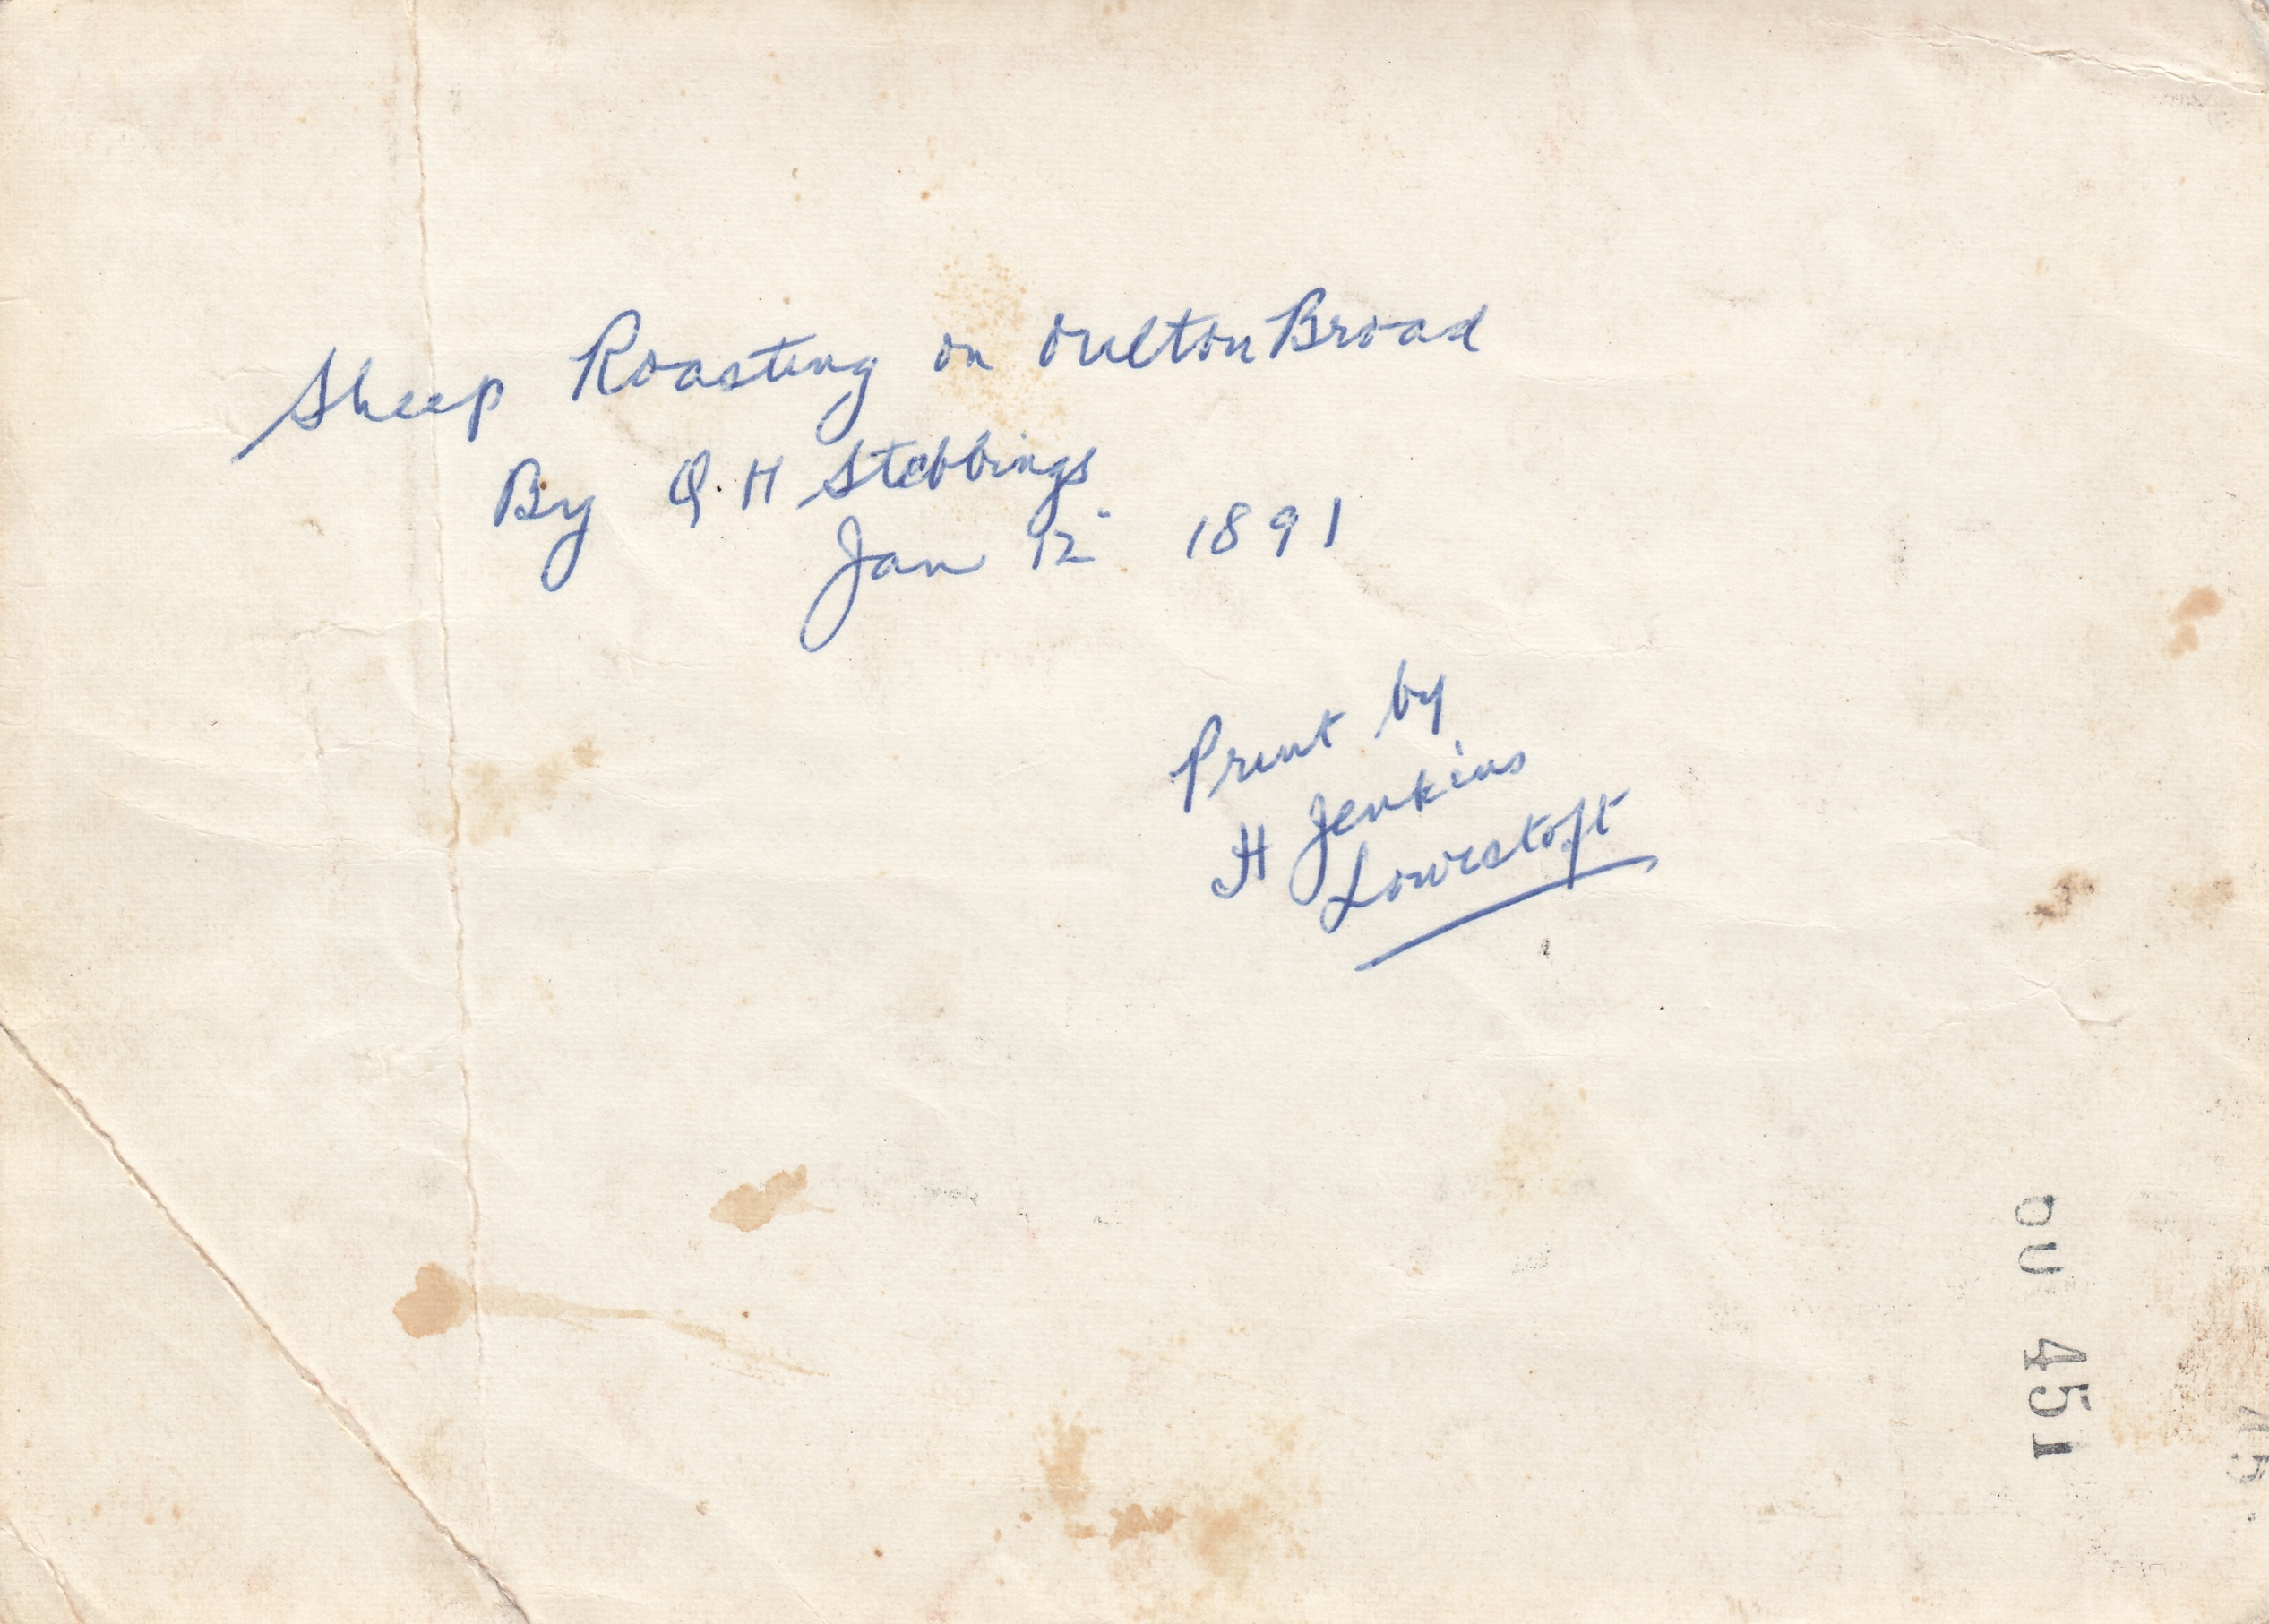 Sheep Roasting on Oulton Broad
By Q. H Stebbings
Jan 12" 1891
Print by
H Jenkins
Lowestoft
451